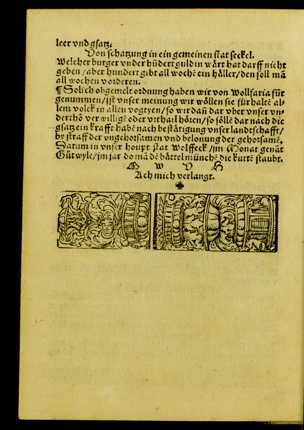 leer vnd gsatz.
Von schatzung in ein gemeinen stat seckel.
Welcher burger vnder hũdert guldin wärt hat darff nicht
geben / aber hundert gibt all wochẽ ein häller / den soll mã
all wochen vorderen.
¶ Solich obgemelt ordnung haben wir von Wolfaria für
genummen / ist vnser meinung wir wöllen sie für haltẽ al
lem volck in allen vogtyen / so wir dañ dar über vnser vn
derthõ ver willigẽ oder vrthail hören / so sölle dar nach die
gsatz ein krafft habẽ nach bestätigung vnser landtschafft /
by straff der vngehorsamen vnd belonung der gehorsamẽ.
Datum in vnser houpt stat Wolffeck / im Monat genãt
Gůtwyle / im jar do mã dẽ bättel münchẽ die kuttẽ staubt.
Ach mich verlangt.